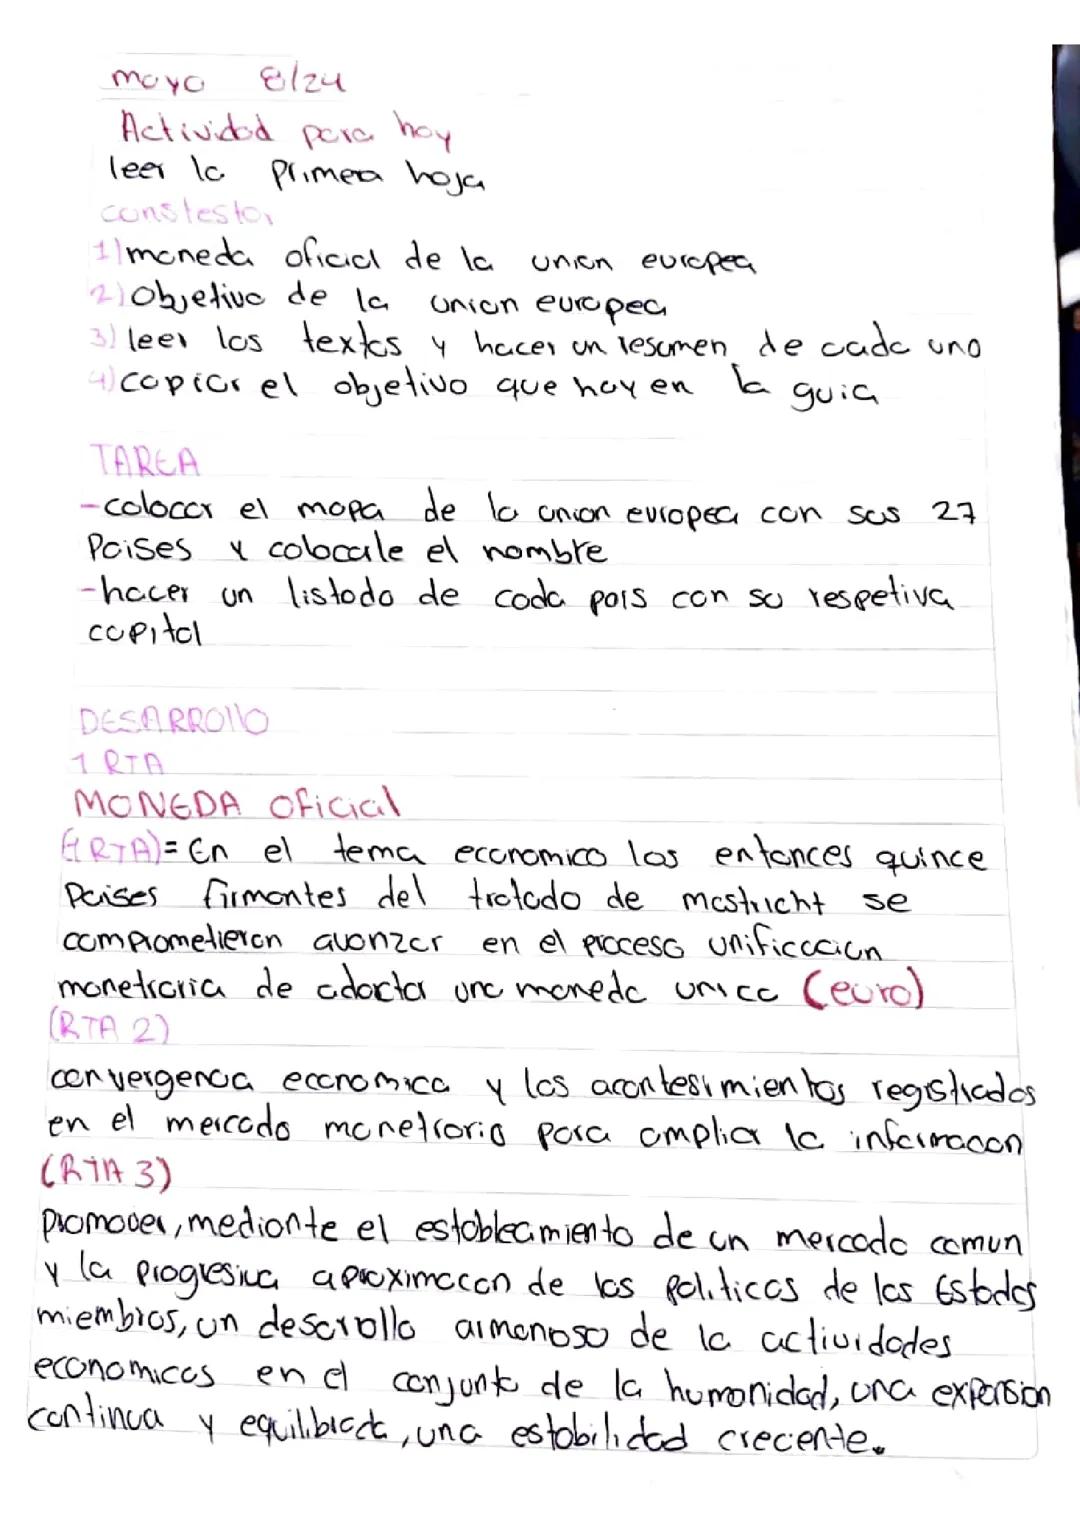 mayo 8/24
Actividad para hoy
leer la primera hoja
constestar
1) moneda oficial de la union europea
2) Objetivo de la union europea
3) leer los textos y hacer un resumen de cada uno
4) copiar el objetivo que hay en la guia
TAREA
-colocar el mapa de la union europea con sus 27
Paises y colocale el nombre
-hacer un listado de cada pais con su respetiva
capital
DESARROllO
1 RTA
MONEDA Oficial
(1 RTA)= En el tema economico los entonces quince
Paises firmantes del tratado de mastricht se
comprometieron avanzar en el proceso unificacion
monetraria de adoctar una moneda unica (euro)
(RTA 2)
convergencia economica y los acontesimientos registrados
en el mercado monetrario para ampliar la informacon
(RTA 3)
promover, mediante el establecamiento de un mercado comun
y la progresiva aproximacon de las politicas de los Estados
miembros, un desarrollo armonoso de la actividades
economicas en el conjunto de la humanidad, una expansion
continua y equilibrada, una estabilidad creciente.